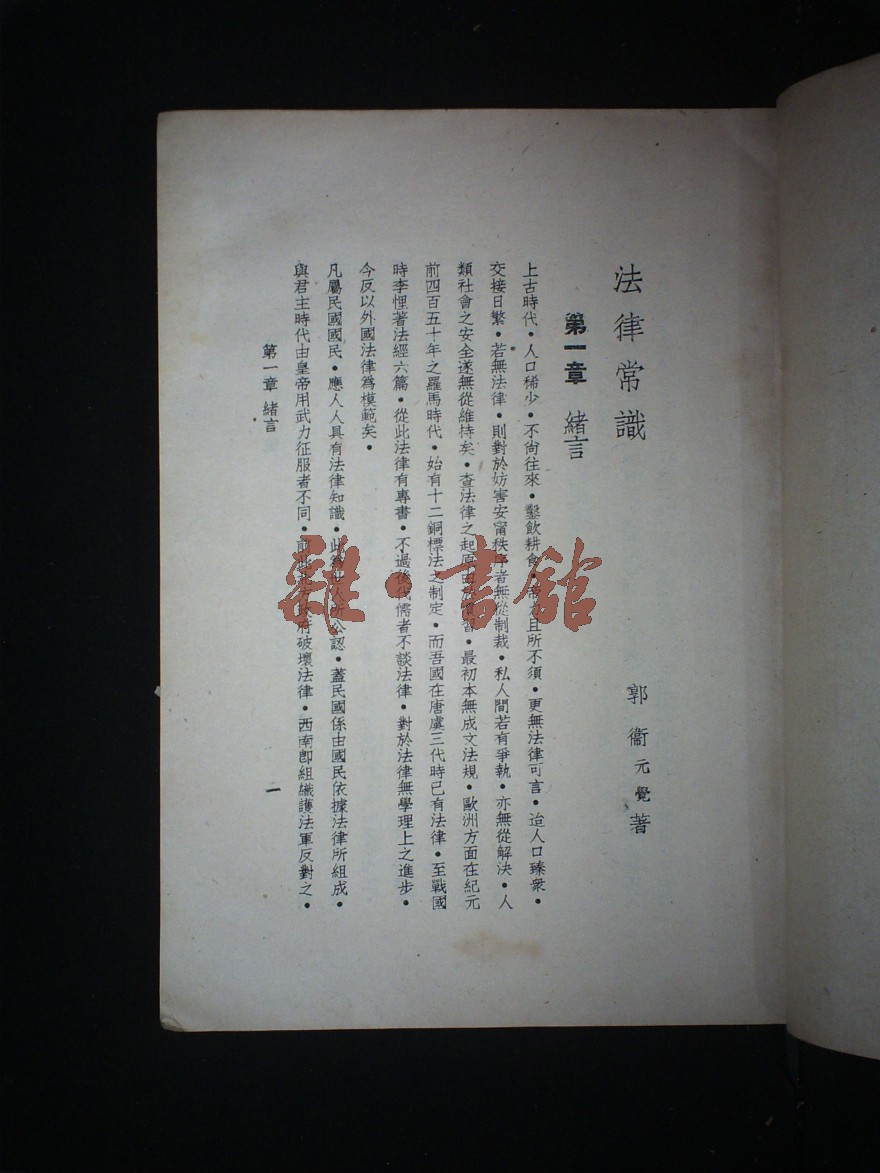 法律常識
郭衞元覺著
第一章 緒言
上古時代•人口稀少•不尙往來•鑿飮耕食•帝力且所不須•更無法律可言•迨人口臻衆•
交接日繁•若無法律•則對於妨害安甯秩序者無從制裁•私人間若有爭執•亦無從解決•人
類社會之安全遂無從維持矣•查法律之起原由於慣習•最初本無成文法規•歐洲方面在紀元
前四百五十年之羅馬時代•始有十二銅標法之制定•而吾國在唐虞三代時已有法律•至戰國
時李悝著法經六篇•從此法律有專書•不過後代儒者不談法律•對於法律無學理上之進步•
今反以外國法律爲模範矣•
凡屬民國國民•應人人具有法律知識•此爲世人所公認•蓋民國係由國民依據法律所組成•
與君主時代由皇帝用武力征服者不同•前此北方政府破壞法律•西南卽組織護法軍反對之•
第一章 緒言
一
雜•書館